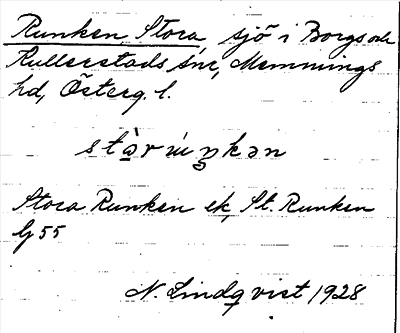 Runken, Stora, sjö i Borgs och
Kullerstads snr, Memmings
hd, Österg. l.
stàrúŋkən
Stora Runken ek, St. Runken
G 55
N. Lindqvist 1928